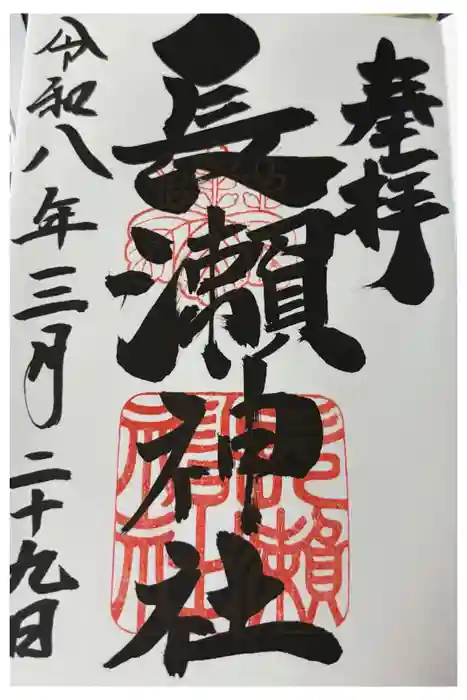 奉拝
長瀬神社
令和八年三月二十九日